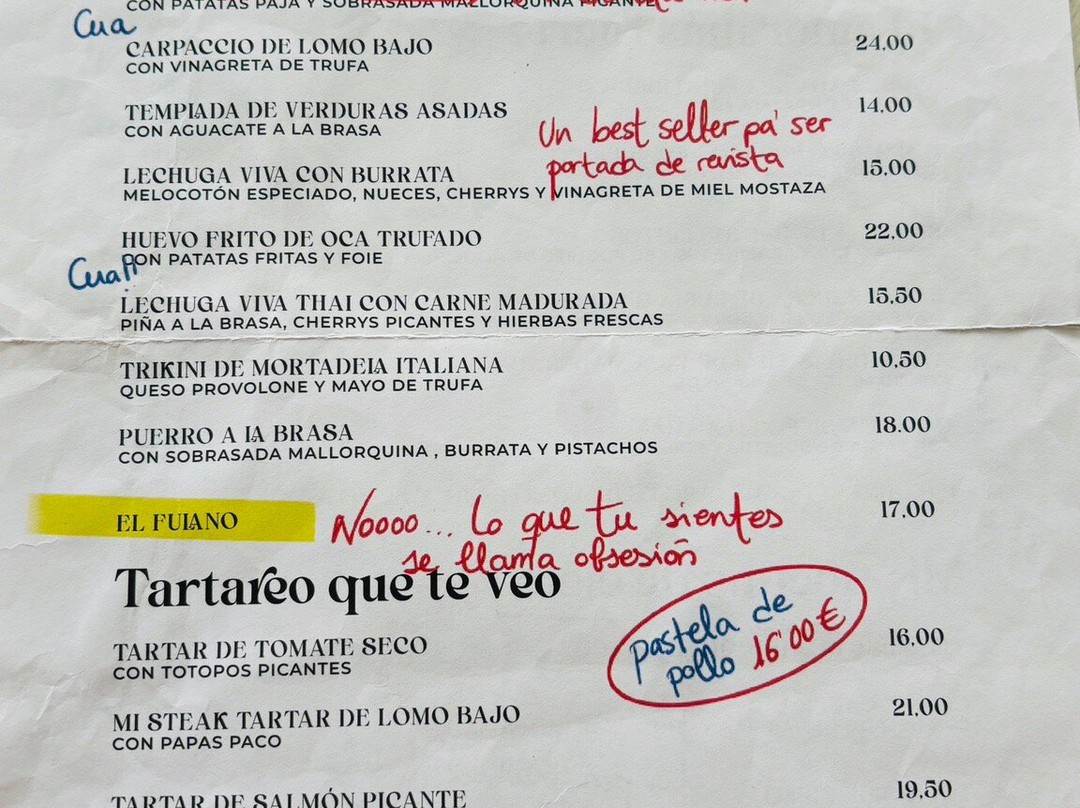 CON PATATAS PAJA Y SOBRASADA MALLORQUINA PICANTE
Cua
CARPACCIO DE LOMO BAJO 24,00
CON VINAGRETA DE TRUFA
TEMPIADA DE VERDURAS ASADAS 14.00
CON AGUACATE A LA BRASA
Un best seller pa' ser
portada de revista
LECHUGA VIVA CON BURRATA 15.00
MELOCOTÓN ESPECIADO, NUECES, CHERRYS Y VINAGRETA DE MIEL MOSTAZA
HUEVO FRITO DE OCA TRUFADO 22,00
CON PATATAS FRITAS Y FOIE
LECHUGA VIVA THAI CON CARNE MADURADA 15,50
PIÑA A LA BRASA, CHERRYS PICANTES Y HIERBAS FRESCAS
TRIKINI DE MORTADELA ITALIANA 10,50
QUESO PROVOLONE Y MAYO DE TRUFA
PUERRO A LA BRASA 18.00
CON SOBRASADA MALLORQUINA , BURRATA Y PISTACHOS
EL FULANO 17.00
Noooo... lo que tu sientes
se llama obsesión
Tartareo que te veo
pastela de
pollo 16'00€
TARTAR DE TOMATE SECO 16,00
CON TOTOPOS PICANTES
MI STEAK TARTAR DE LOMO BAJO 21.00
CON PAPAS PACO
TARTAR DE SALMÓN PICANTE 19,50